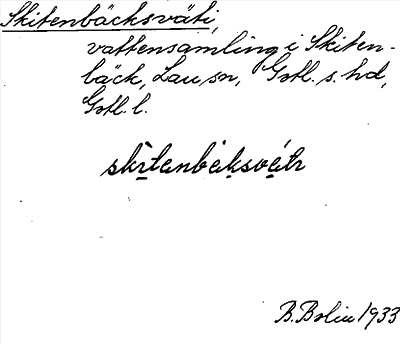 Skitenbäcksväti,
vattensamling i Skiten-
bäck, Lau sn, Gotl. s. hd,
Gotl. l.
skìtanbèksvétı
B. Bolin 1933